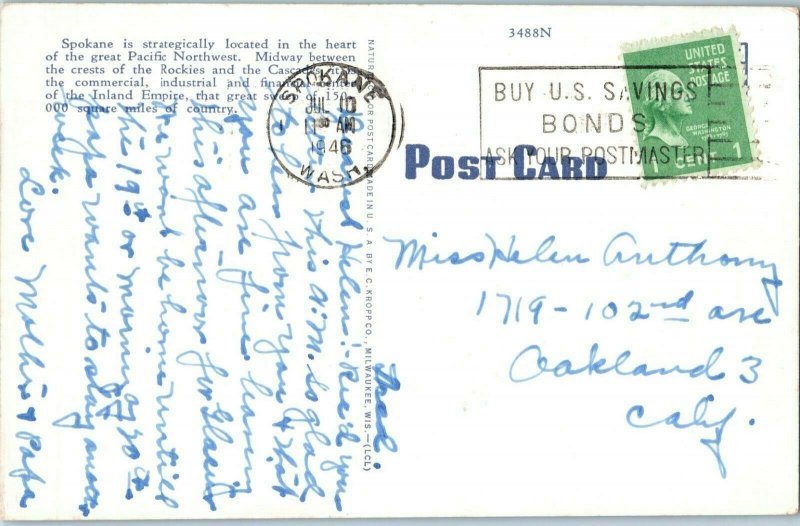 Spokane is strategically located in the heart
of the great Pacific Northwest. Midway between
the crests of the Rockies and the Cascades it is
the commercial, industrial and financial center
of the Inland Empire, that great sweep of 150,-
000 square miles of country.
3488N
SPOKANE
JUL 10
AM
1946
WASH.
BUY U.S. SAVINGS
BONDS
ASK YOUR POSTMASTER
UNITED
STATES
POSTAGE
GEORGE
WASHINGTON
1 CENT 1
POST CARD
Miss Helen Anthony
1719-102nd ave
Oakland 3
Calif.
NATURAL COLOR POST CARD MADE IN U. S. A. BY E. C. KROPP CO., MILWAUKEE, WIS.—(LCL)
Wed.
Dearest Helen:- Rec'd your
this A.M. So glad
to hear from you & that
you are fine. leaving
this afternoon for Glacier
we wont be home untill
the 19th or morning of 20th
Papa wants to stay another
week.
Love Mother & Papa